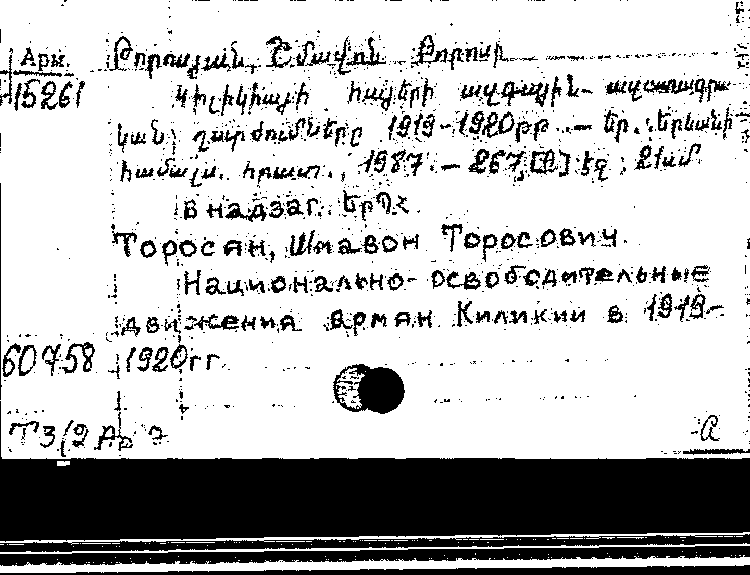 Арм. Թորոսյան, Շմավոն Թորոսի
15261 Կիլիկիայի հայերի ազգային-ազատագրա
կան շարժումները 1919-1920թթ. — Եր.: Երևանի
համալս. հրատ., 1987. — 267,[1] էջ ; 21սմ
В надзаг. ԵրՊՀ.
Торосян, Шмавон Торосович.
Национально-освободительные
движения армян Киликии в 1919-
60758 1920гг.
Т3(2Ар)7